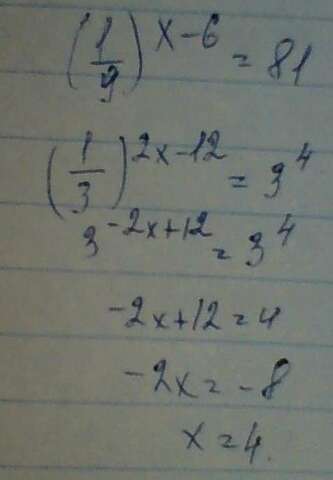 (1/9)^{x-6} = 81
(1/3)^{2x-12} = 3^4
3^{-2x+12} = 3^4
-2x+12=4
-2x=-8
x=4.